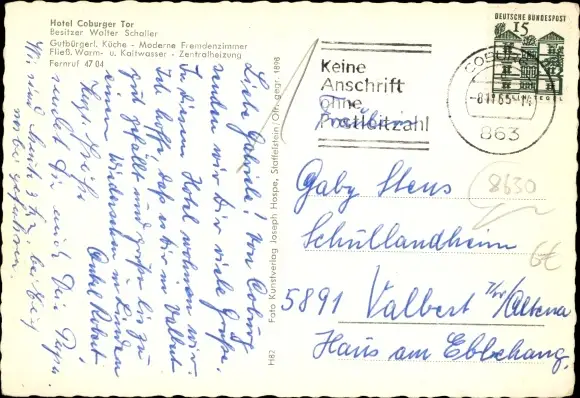 Hotel Coburger Tor
Besitzer Walter Schaller
Gutbürgerl. Küche - Moderne Fremdenzimmer
Fließ. Warm- u. Kaltwasser - Zentralheizung
Fernruf 47 04
Liebe Gabriele! Von Coburg
senden wir Dir viele Grüße.
In diesem Hotel wohnen wir.
Ich hoffe, daß es Dir in Valbert
gut gefällt und grüße bis zu
einem Wiedersehen in Linden
Herzl. Grüße
Onkel Robert
Wir sind heute
bei Dir
vorbei gefahren.
Dein Papa.
Foto Kunstverlag Joseph Hospe, Staffelstein/Ofr. gegr. 1898
H87
Keine
Anschrift
ohne
Postleitzahl
Fräulein
COBURG
-8.11.65-
863
DEUTSCHE BUNDESPOST
15
TEGEL
8630
6€
Gaby Stens
Schullandheim
5891 Valbert /Altena
Haus am Ebbehang.